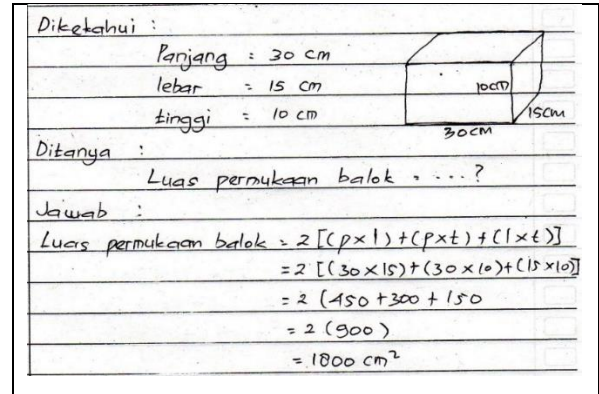 Diketahui :
Panjang : 30 cm
lebar : 15 cm
tinggi : 10 cm
10cm
15cm
30cm
Ditanya :
Luas permukaan balok = ....?
Jawab :
Luas permukaan balok = 2 [(p×l)+(p×t)+(l×t)]
= 2 [(30×15)+(30×10)+(15×10)]
= 2 (450+300+150
= 2 (900)
= 1800 cm²